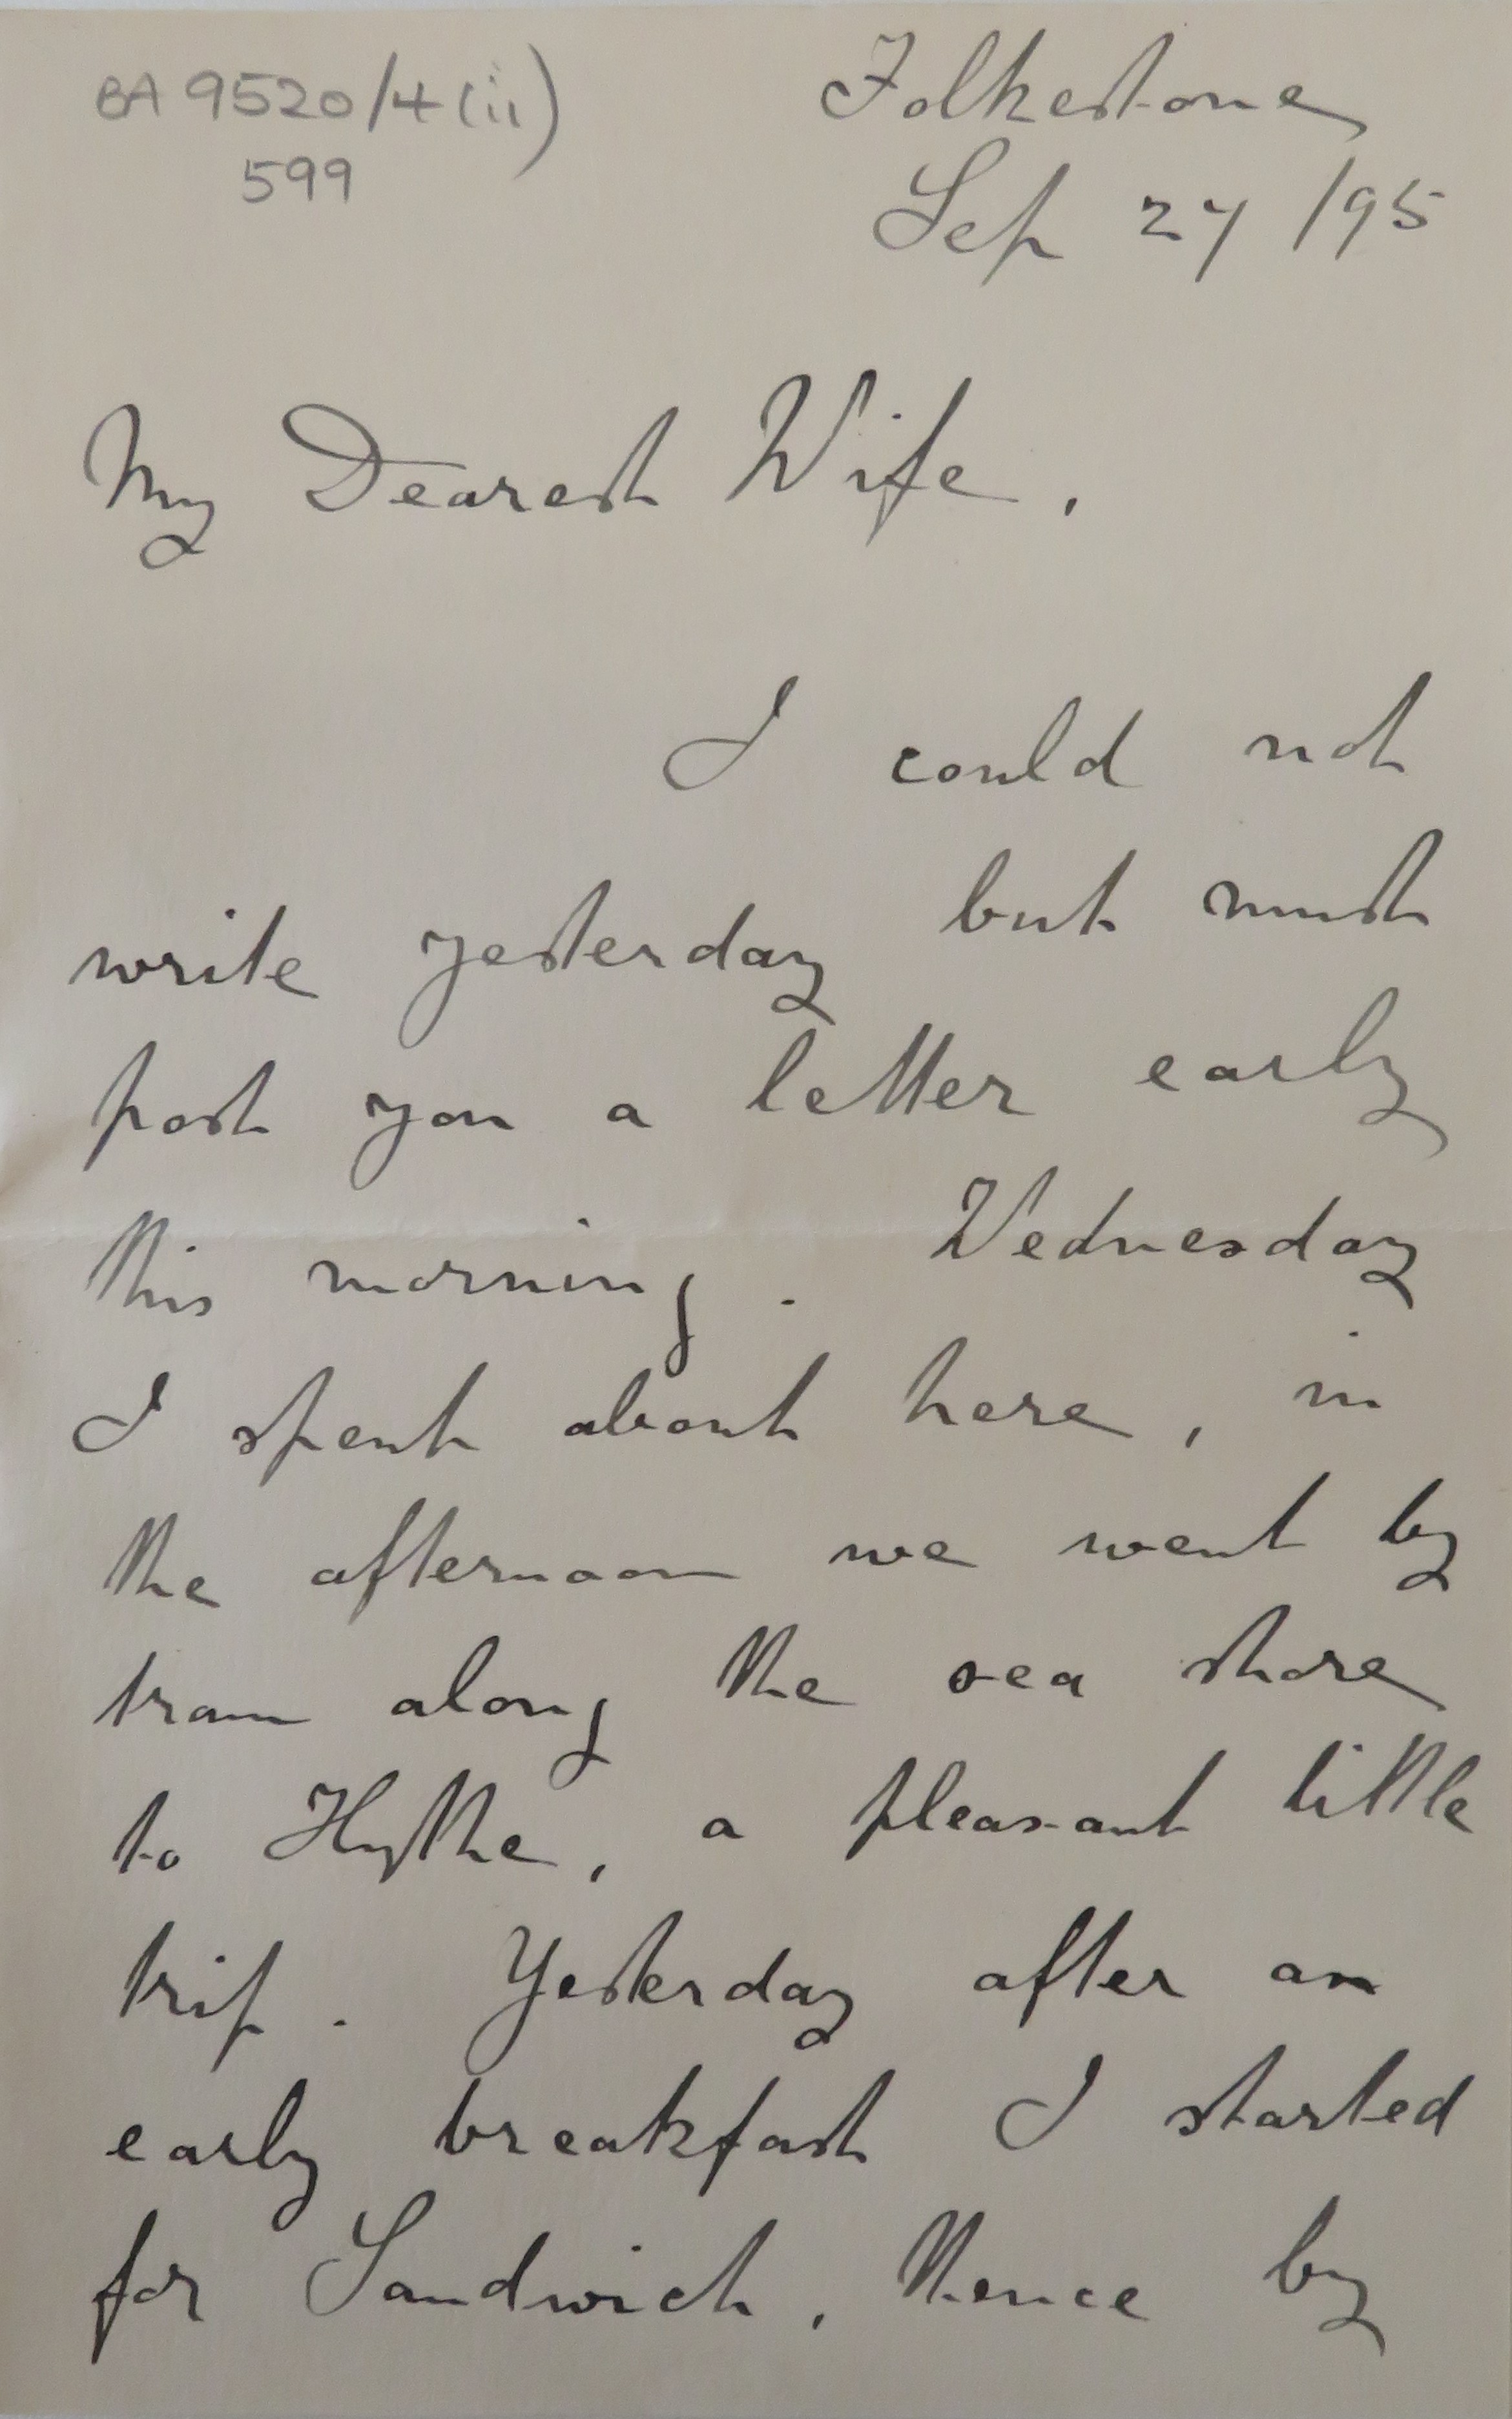 BA 9520/4(ii)
599
Folkestone
Sep 27 /95
My Dearest Wife,
I could not
write yesterday but must
post you a letter early
this morning. Wednesday
I spent about here, in
the afternoon we went by
tram along the sea shore
to Hythe, a pleasant little
trip. Yesterday after an
early breakfast I started
for Sandwich, thence by